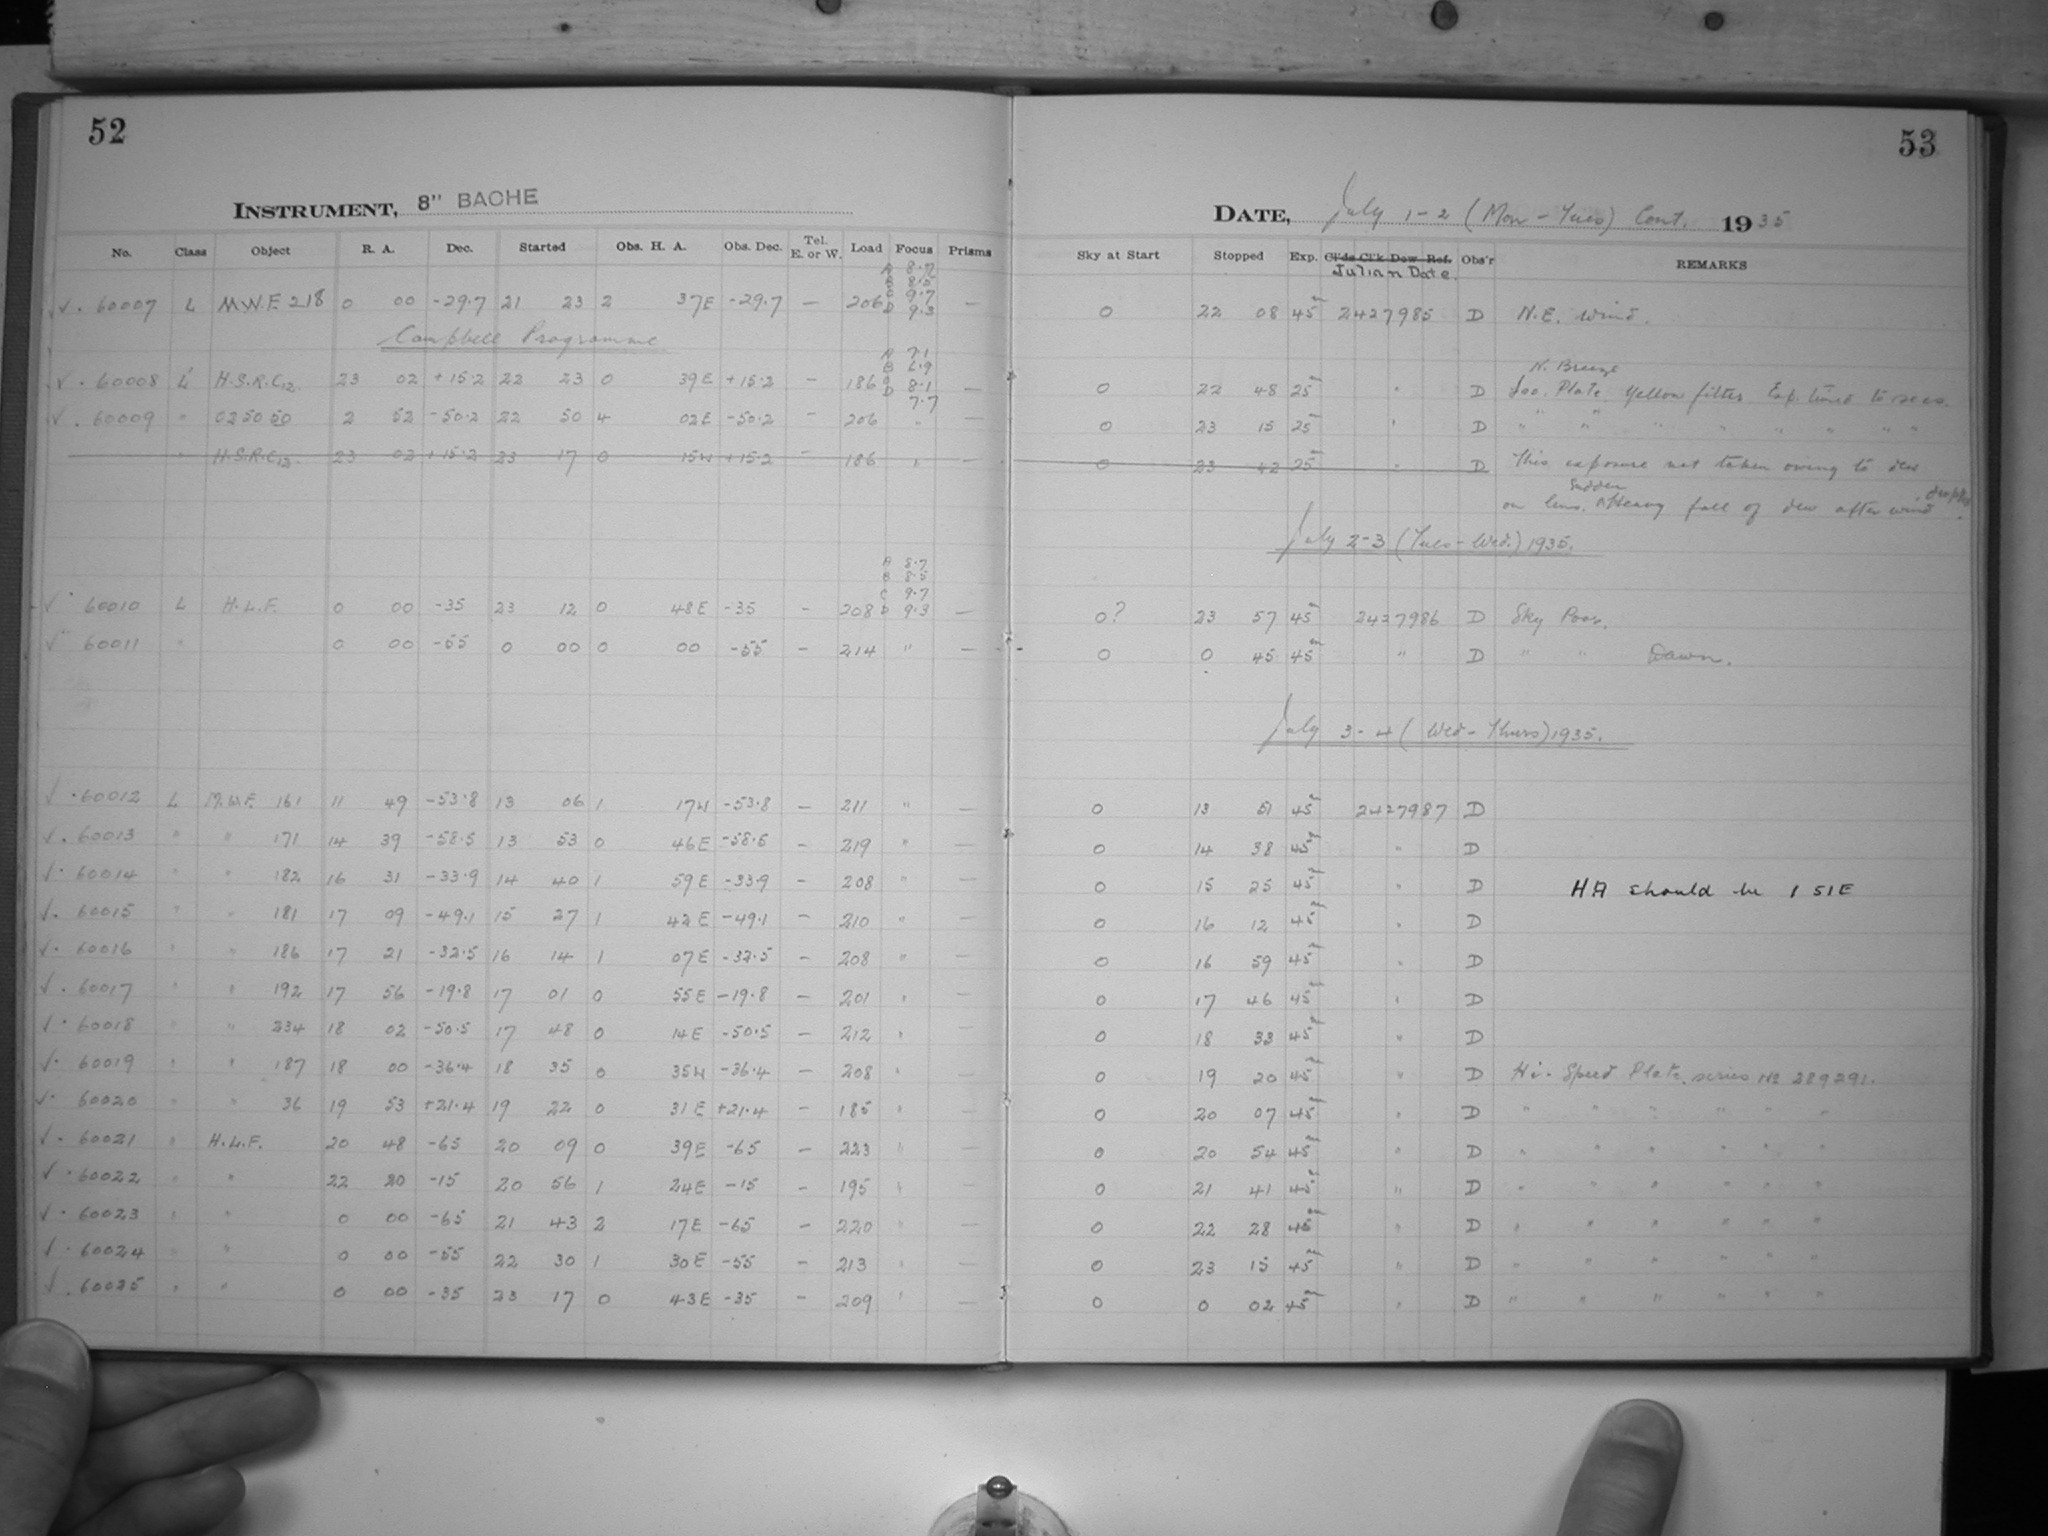 52
INSTRUMENT, 8" BACHE
No. Class Object R. A. Dec. Started Obs. H. A. Obs. Dec. Tel. E. or W. Load Focus Prisms
A 8.7
B 8.5
C 9.7
√ . 60007 L M.W.F. 218 0 00 -29.7 21 23 2 37E -29.7 — 206 D 9.3 —
Campbell Programme
A 7.1
B 6.9
√ . 60008 L H.S.R.C12. 23 02 +15.2 22 23 0 39E +15.2 — 186 C 8.1 —
D 7.7
√ . 60009 " 025050 2 52 -50.2 22 50 4 02E -50.2 — 206 "
" H.S.R.C12. 23 02 +15.2 23 17 0 15W +15.2 — 186 "
A 8.7
B 8.5
C 9.7
√ . 60010 L H.L.F. 0 00 -35 23 12 0 48E -35 — 208 D 9.3 —
√ 60011 " 0 00 -55 0 00 0 00 -55 — 214 " —
√ . 60012 L M.W.F. 161 11 49 -53.8 13 06 1 17W -53.8 — 211 " —
√ . 60013 " " 171 14 39 -58.5 13 53 0 46E -58.5 — 219 " —
√ . 60014 " " 182 16 31 -33.9 14 40 1 59E -33.9 — 208 " —
√ . 60015 " " 181 17 09 -49.1 15 27 1 42E -49.1 — 210 " —
√ . 60016 " " 186 17 21 -32.5 16 14 1 07E -32.5 — 208 " —
√ . 60017 " " 192 17 56 -19.8 17 01 0 55E -19.8 — 201 " —
√ . 60018 " " 234 18 02 -50.5 17 48 0 14E -50.5 — 212 " —
√ . 60019 " " 187 18 00 -36.4 18 35 0 35W -36.4 — 208 " —
√ . 60020 " " 36 19 53 +21.4 19 22 0 31E +21.4 — 185 " —
√ . 60021 " H.L.F. 20 48 -65 20 09 0 39E -65 — 223 " —
√ . 60022 " " 22 20 -15 20 56 1 24E -15 — 195 " —
√ . 60023 " " 0 00 -65 21 43 2 17E -65 — 220 " —
√ . 60024 " " 0 00 -55 22 30 1 30E -55 — 213 " —
√ . 60025 " " 0 00 -35 23 17 0 43E -35 — 209 " —
53
DATE, July 1-2 (Mon - Tues) Cont. 1935
Sky at Start Stopped Exp. Cl'ds Cl'k Dew Ref. Obs'r REMARKS
Julian Date.
0 22 08 45m 2427985 D N.E. wind.
N. Breeze
0 22 48 25m " D Plate. Yellow filter Exp. timed to secs.
0 23 15 25m " D " " " " " " " "
0 23 42 25m " D This exposure not taken owing to dew
on lens. Sudden Heavy fall of dew after wind dropped.
July 2-3 (Tues - Wed.) 1935.
0? 23 57 45m 2427986 D Sky Poor.
0 0 45 45m " D " " Dawn.
July 3-4 (Wed - Thurs) 1935.
0 13 51 45m 2427987 D
0 14 38 45m " D
0 15 25 45m " D HA should be 1 51E
0 16 12 45m " D
0 16 59 45m " D
0 17 46 45m " D
0 18 33 45m " D
0 19 20 45m " D Hi-Speed Plate. series No 289291.
0 20 07 45m " D " " " " " "
0 20 54 45m " D " " " " " "
0 21 41 45m " D " " " " " "
0 22 28 45m " D " " " " " "
0 23 15 45m " D " " " " " "
0 0 02 45m " D " " " " " "